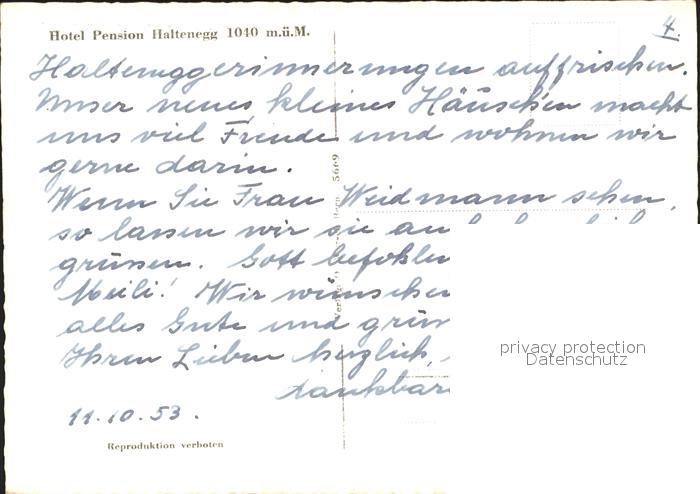 Hotel Pension Haltenegg 1040 m.ü.M.
4.
Halteneggerinnerungen auffrischen.
Unser neues kleines Häuschen macht
uns viel Freude und wohnen wir
gerne darin.
Wenn Sie Frau Weidmann sehen,
so lassen wir sie
grüssen. Gott befohlen
Meili! Wir wünschen
alles Gute und
Ihren Lieben herzlich,
dankbar
11.10.53.
5669
Reproduktion verboten
privacy protection
Datenschutz